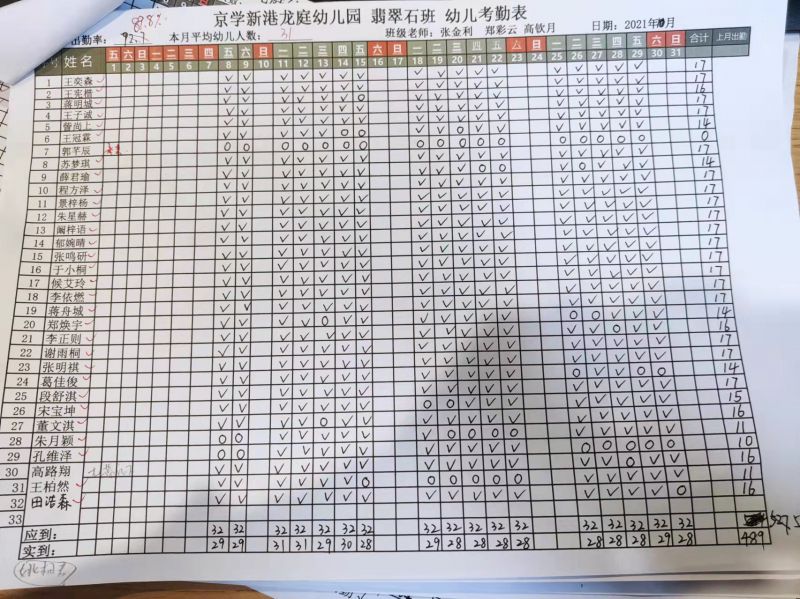 88.8%
京学新港龙庭幼儿园 翡翠石班 幼儿考勤表
出勤率: 92.7 本月平均幼儿人数: 31 班级老师: 张金利 郑彩云 高钦月 日期: 2021年10月
号 姓名 五 六 日 一 二 三 四 五 六 日 一 二 三 四 五 六 日 一 二 三 四 五 六 日 一 二 三 四 五 六 日 合计 上月出勤
1 2 3 4 5 6 7 8 9 10 11 12 13 14 15 16 17 18 19 20 21 22 23 24 25 26 27 28 29 30 31
1 王奕森 17
2 17
3 蒋明城 16
4 王子诚 17
5 曾尚上 17
6 王冠霖 14
7 郭芊辰 0
8 苏梦琪 17
9 薛君瑜 14
10 程方泽 17
11 景梓杨 17
12 朱星赫 17
13 阚梓语 17
14 郁婉晴 17
15 张鸣研 17
16 于小桐 17
17 候艾玲 17
18 李依燃 17
19 蒋舟城 17
20 郑焕宇 14
21 李正则 16
22 谢雨桐 17
23 张明祺 17
24 葛佳俊 14
25 段舒淇 17
26 宋宝坤 15
27 董文淇 16
28 朱月颖 11
29 孔维泽 10
30 高路翔 16
31 王柏然 11
32 田浩森 16
33
应到: 32 32 32 32 32 32 32 32 32 32 32 32 32 32 32 32 32
实到: 29 29 31 31 29 30 28 29 28 28 28 28 28 28 28 29 28 489